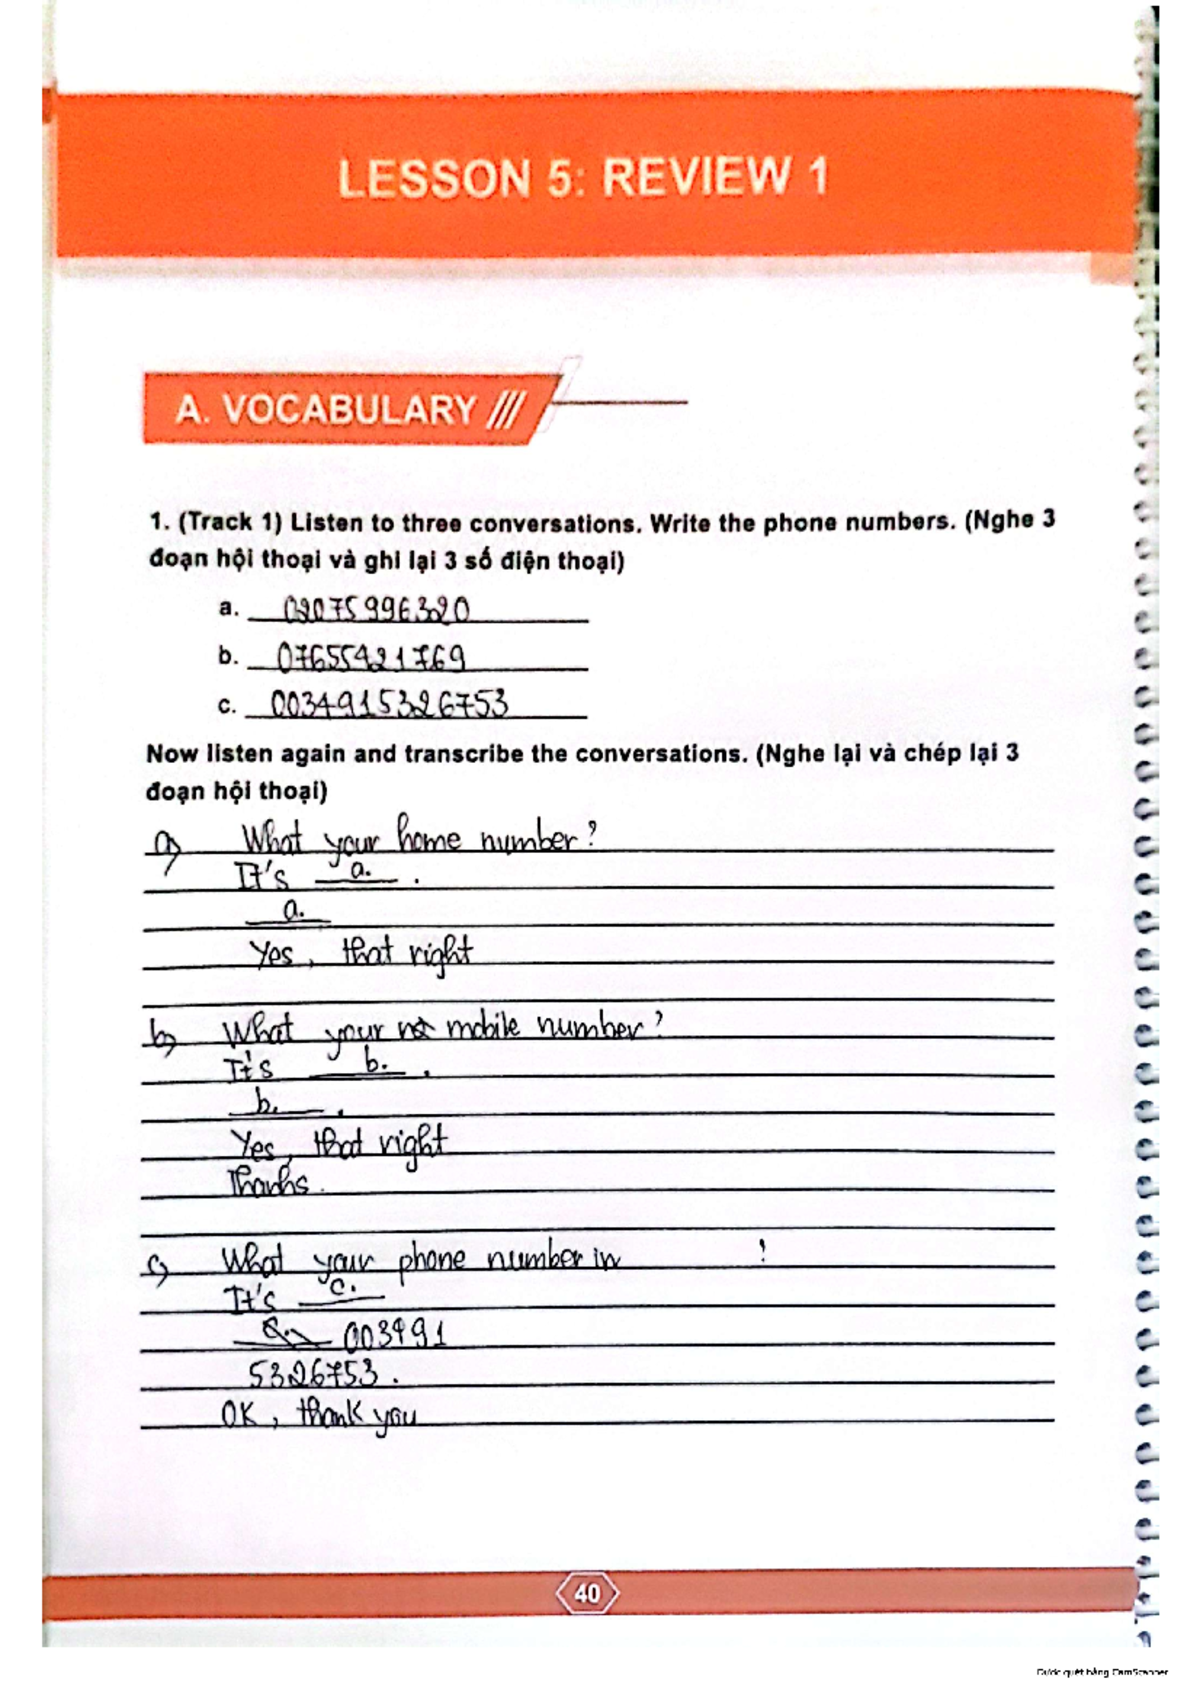 LESSON 5: REVIEW 1
A. VOCABULARY ///
1. (Track 1) Listen to three conversations. Write the phone numbers. (Nghe 3
đoạn hội thoại và ghi lại 3 số điện thoại)
a. 02075996320
b. 07655421769
c. 0034915326753
Now listen again and transcribe the conversations. (Nghe lại và chép lại 3
đoạn hội thoại)
a) What your home number?
It's a. .
a.
Yes, that right
b) What your mobile number?
It's b. .
b. .
Yes, that right
Thanks.
c) What your phone number in ?
It's c.
003491
5326753.
OK, thank you
40
Được quét bằng CamScanner